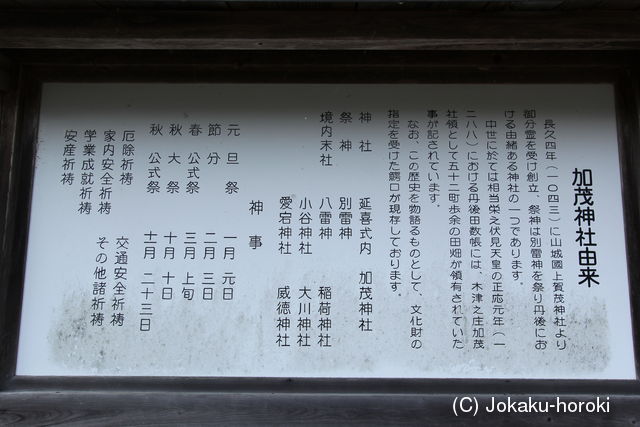 加茂神社由来
長久四年（一〇四三）に山城國上賀茂神社より
御分霊を受け創立、祭神は別雷神を祭り丹後にお
ける由緒ある神社の一つであります。
中世に於ては相当栄之伏見天皇の正応元年（一
二八八）における丹後田数帳には、木津之庄加茂
社領として五十二町歩余の田畑が領有されていた
事が記されています。
なお、この歴史を物語るものとして、文化財の
指定を受けた鰐口が現存しております。
神社 延喜式内 加茂神社
祭神 別雷神
境内末社 八雷神 稲荷神社
小谷神社 大川神社
愛宕神社 威徳神社
神事
元旦祭 一月 元日
節分 二月 三日
春公式祭 三月 上旬
秋大祭 十月 十日
秋公式祭 十一月 二十三日
厄除祈祷 交通安全祈祷
家内安全祈祷 その他諸祈祷
学業成就祈祷
安産祈祷
(C) Jokaku-horoki